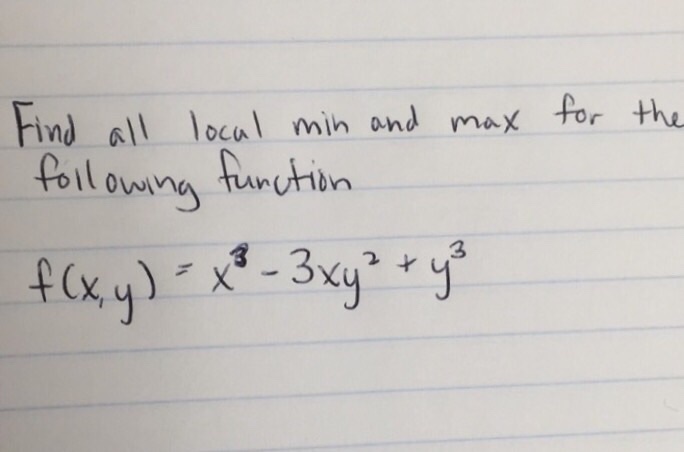 Find all local min and max for the
following function
f(x,y) = x³ - 3xy² + y³